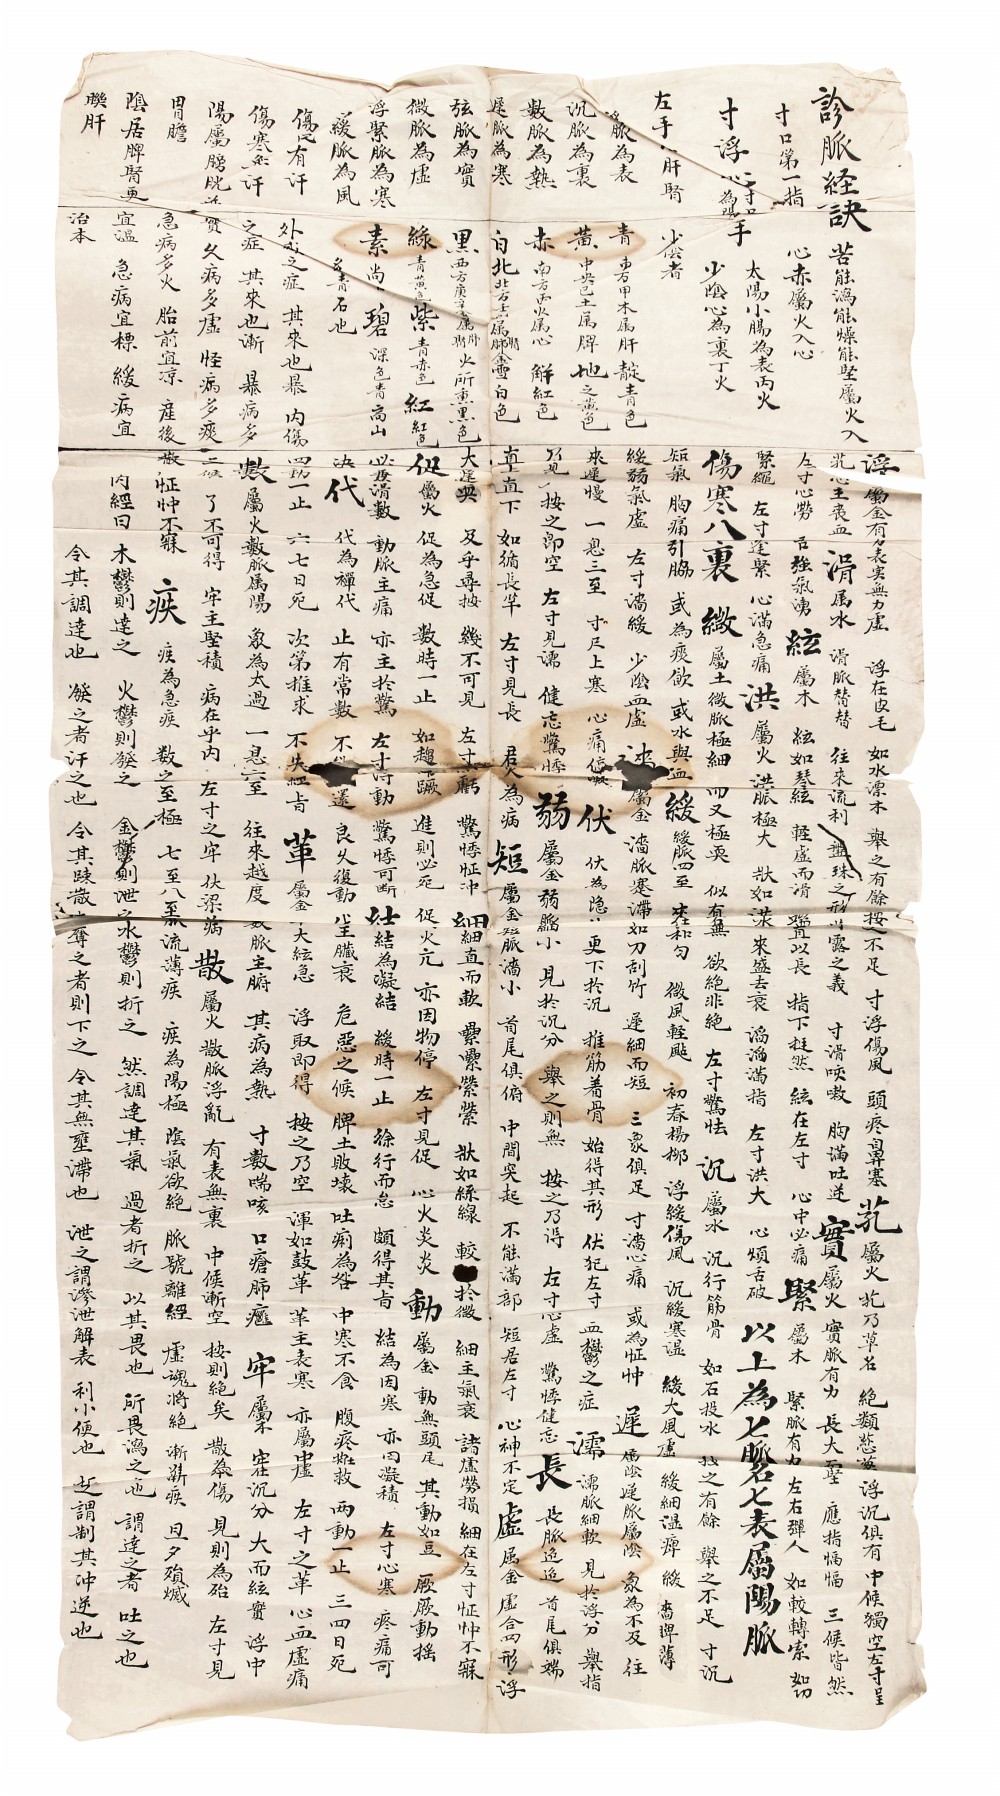 診脈経訣 苦能瀉能燥能堅屬火入
寸口第一指 心赤屬火入心
寸浮心 手 太陽小腸為表丙火
少陰心為裏丁火
左手 肝腎 少陰者
脈為表 青 東方甲木属肝 靛青色
沉脈為裏 黄 中央己土属脾 地之黄色
數脈為熱 赤 南方丙火属心 鮮紅色
遲脈為寒 白 北方 白色
弦脈為實 黑 火所熏黑色
微脈為虛 綠 青黄色 紫 青赤色 紅 紅色
浮緊脈為寒 素 尚 碧 深色青高山
緩脈為風 多青石也
傷 有汗 外感之症 其來也暴 內傷
傷寒無汗 之症 其來也漸 暴病多
陽屬膀胱 實 久病多虛 怪病多痰
胃膽 急病多火 胎前宜凉 産後
陰居脾腎更 宜温 急病宜標 緩病宜
聯肝 治本
浮 屬金有力表实無力虛 浮在皮毛 如水漂木 舉之有餘按之不足 寸浮傷風 頭疼鼻塞 芤 屬火 芤乃草名 絶類慈葱 浮沉俱有 中候獨空左寸呈
芤心主喪血 滑 属水 滑脈替替 往來流利 盤珠之形荷露之義 寸滑咳嗽 胸滿吐逆 實 屬火 實脈有力 長大而堅 應指愊愊 三候皆然
左寸心勞 舌強氣湧 絃 屬木 絃如琴絃 軽虛而滑 端直以長 指下挺然 絃在左寸 心中必痛 緊 屬木 緊脈有力左右彈人 如較轉索 如切
緊繩 左寸逢緊 心滿急痛 洪 屬火 洪脈極大 狀如洪水 來盛去衰 滔滔滿指 左寸洪大 心煩舌破 以上為七脈名七表屬陽脈
傷寒八裏 微 屬土 微脈極細 而又極耎 似有若無 欲絶非絶 左寸驚怯 沉 屬水 沉行筋骨 如石投水 按之有餘 舉之不足 寸沉
短氣 胸痛引脇 或為痰飲 或水與血 緩 緩脈四至 來往和勻 微風輕颭 初春楊柳 浮緩傷風 沉緩寒濕 緩大風虛 緩細濕痺 緩 脾薄
緩弱氣虛 左寸濇緩 少陰血虛 屬金 濇脈蹇滯如刀刮竹 遲細而短 三象俱足 寸濇心痛 或為怔忡 遲 屬陰 遲脈屬陰 象為不及 往
來遲慢 一息三至 寸尺上寒 心痛停 伏 伏為隱 更下於沉 推筋着骨 始得其形 伏犯左寸 血鬱之症 濡 濡脈細軟 見於浮分 舉指
乃見 按之即空 左寸見濡 健忘驚悸 弱 屬金 弱脈小 見於沉分 舉之則無 按之乃得 左寸心虛 驚悸健忘 長 長脈迢迢 首尾俱端
直上直下 如循長竿 左寸見長 君火為病 短 屬金 短脈濇小 首尾俱俯 中間突起 不能滿部 短居左寸 心神不定 虛 属金 虛合四形 浮
大遲耎 及乎尋按 幾不可見 左寸 驚悸怔冲 細 細直而軟 纍纍縈縈 狀如絲線 較 於微 細主氣衰 諸虛勞損 細在左寸怔忡不寐
促 屬火 促為急促 數時一止 如趨 蹶 進則必死 促火亢 亦因物停 左寸見促 心火炎炎 動 屬金 動無頭尾 其動如豆 厥厥動搖
必兼滑數 動脈主痛 亦主於驚 左寸得動 驚悸可断 結 結為凝結 緩時一止 徐行而怠 頗得其旨 結為因寒 亦因凝積 左寸心寒 疼痛可
决 代 代為禪代 止有常數 不 還 良久復動 臟衰 危惡之候 脾土敗壊 吐痢為咎 中寒不食 腹疼難救 两動一止 三四日死
四動一止 六七日死 次第推求 不失經旨 革 屬金 大絃急 浮取即得 按之乃空 渾如鼓革 革主表寒 亦屬中虛 左寸之革 心血虛痛
數 屬火 數脈属陽 象為太過 一息六至 往來越度 數脈主腑 其病為熱 寸數喘咳 口瘡肺癰 牢 屬木 牢在沉分 大而絃實 浮中
二候 了不可得 牢主堅積 病在乎内 左寸之牢 伏梁病 散 屬火 散脈浮亂 有表無裏 中候漸空 按則絶矣 散為傷 見則為殆 左寸見
散 怔忡不寐 疾 疾為急疾 数之至極 七至八至 流薄疾 疾為陽極 陰氣欲絶 脈號離經 虛魂將絶 漸漸疾 旦夕殞滅
内經曰 木鬱則達之 火鬱則發之 金鬱則泄之水鬱則折之 然調達其氣 過者折之 以其畏也 所畏瀉之也 謂達之者 吐之也
令其調達也 發之者汗之也 令其疎散 奪之者則下之 令其無壅滯也 泄之謂滲泄解表 利小便也 折謂制其冲逆也